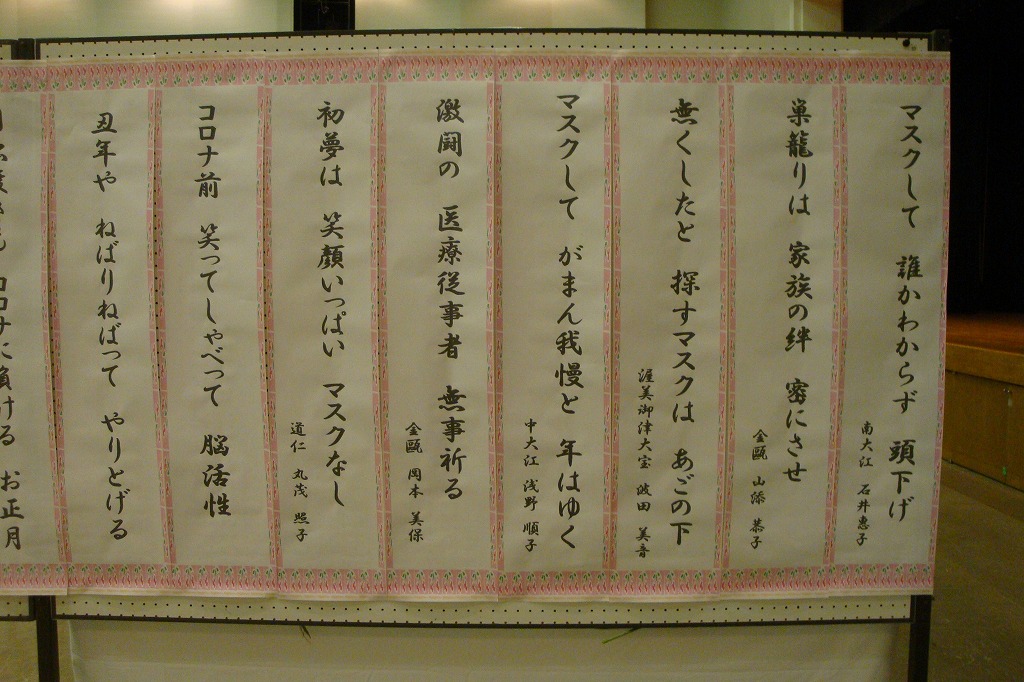 マスクして 誰かわからず 頭下げ
南大江 石井惠子
巣籠りは 家族の絆 密にさせ
金甌 山添 恭子
無くしたと 探すマスクは あごの下
渥美御津大宝 波田 美音
マスクして がまん我慢と 年はゆく
中大江 浅野 順子
激闘の 医療従事者 無事祈る
金甌 岡本 美保
初夢は 笑顔いっぱい マスクなし
道仁 丸茂 照子
コロナ前 笑ってしゃべって 脳活性
丑年や ねばりねばって やりとげる
コロナに負ける お正月